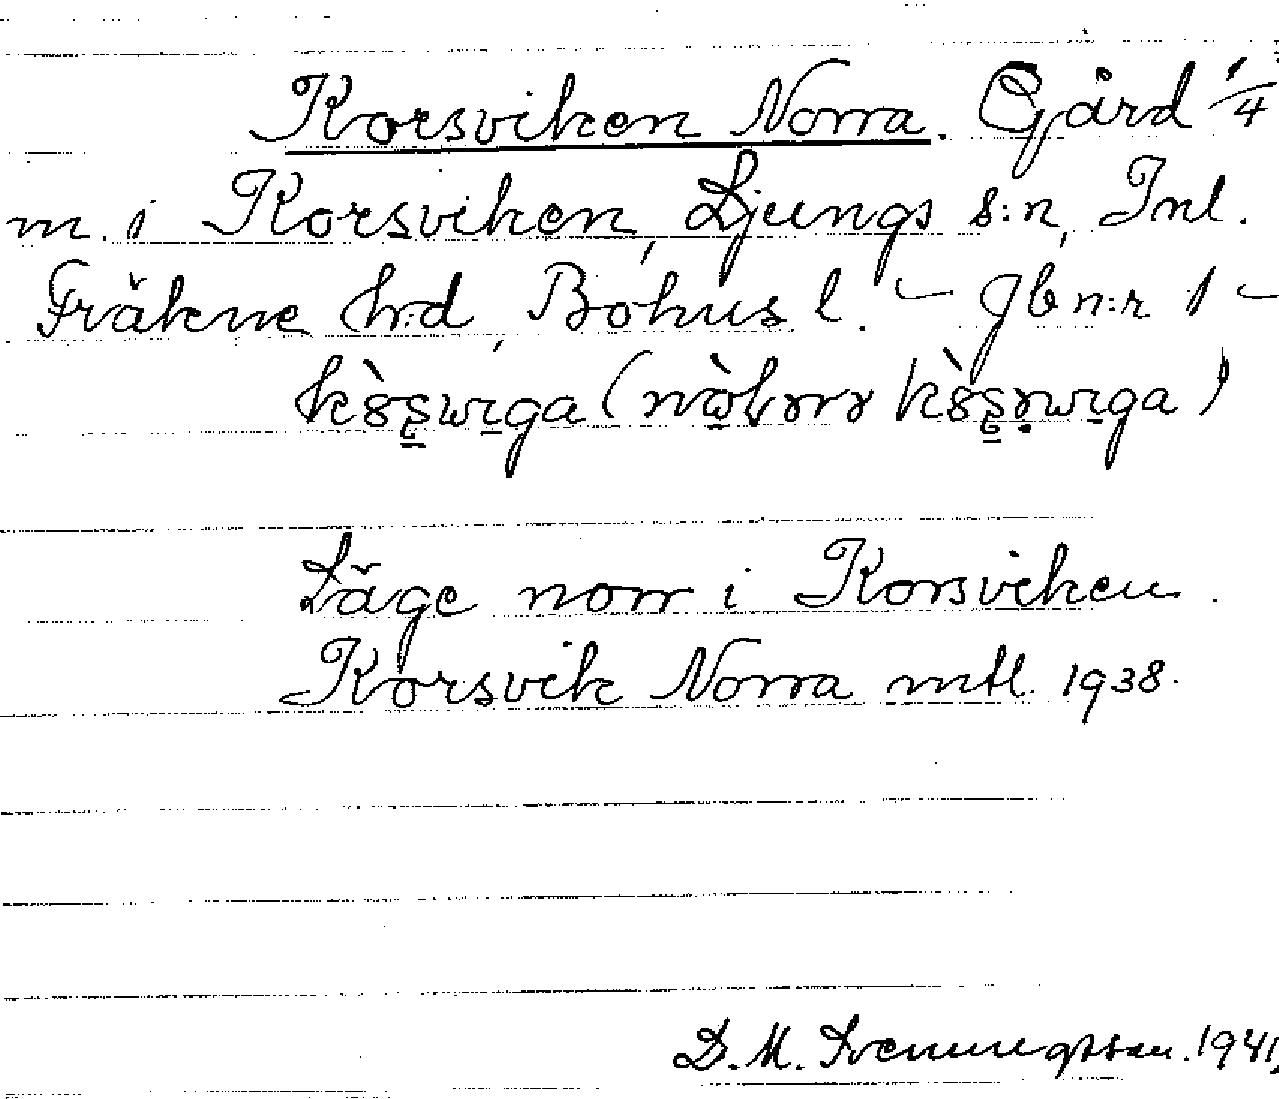 Korsviken Norra. Gård 1/4
m. i Korsviken, Ljungs s:n, Inl.
Fräkne hd, Bohus l. – Jb n:r 1 –
Läge norr i Korsviken.
Korsvik Norra mtl. 1938.
D. M. Svenningsson. 1941.